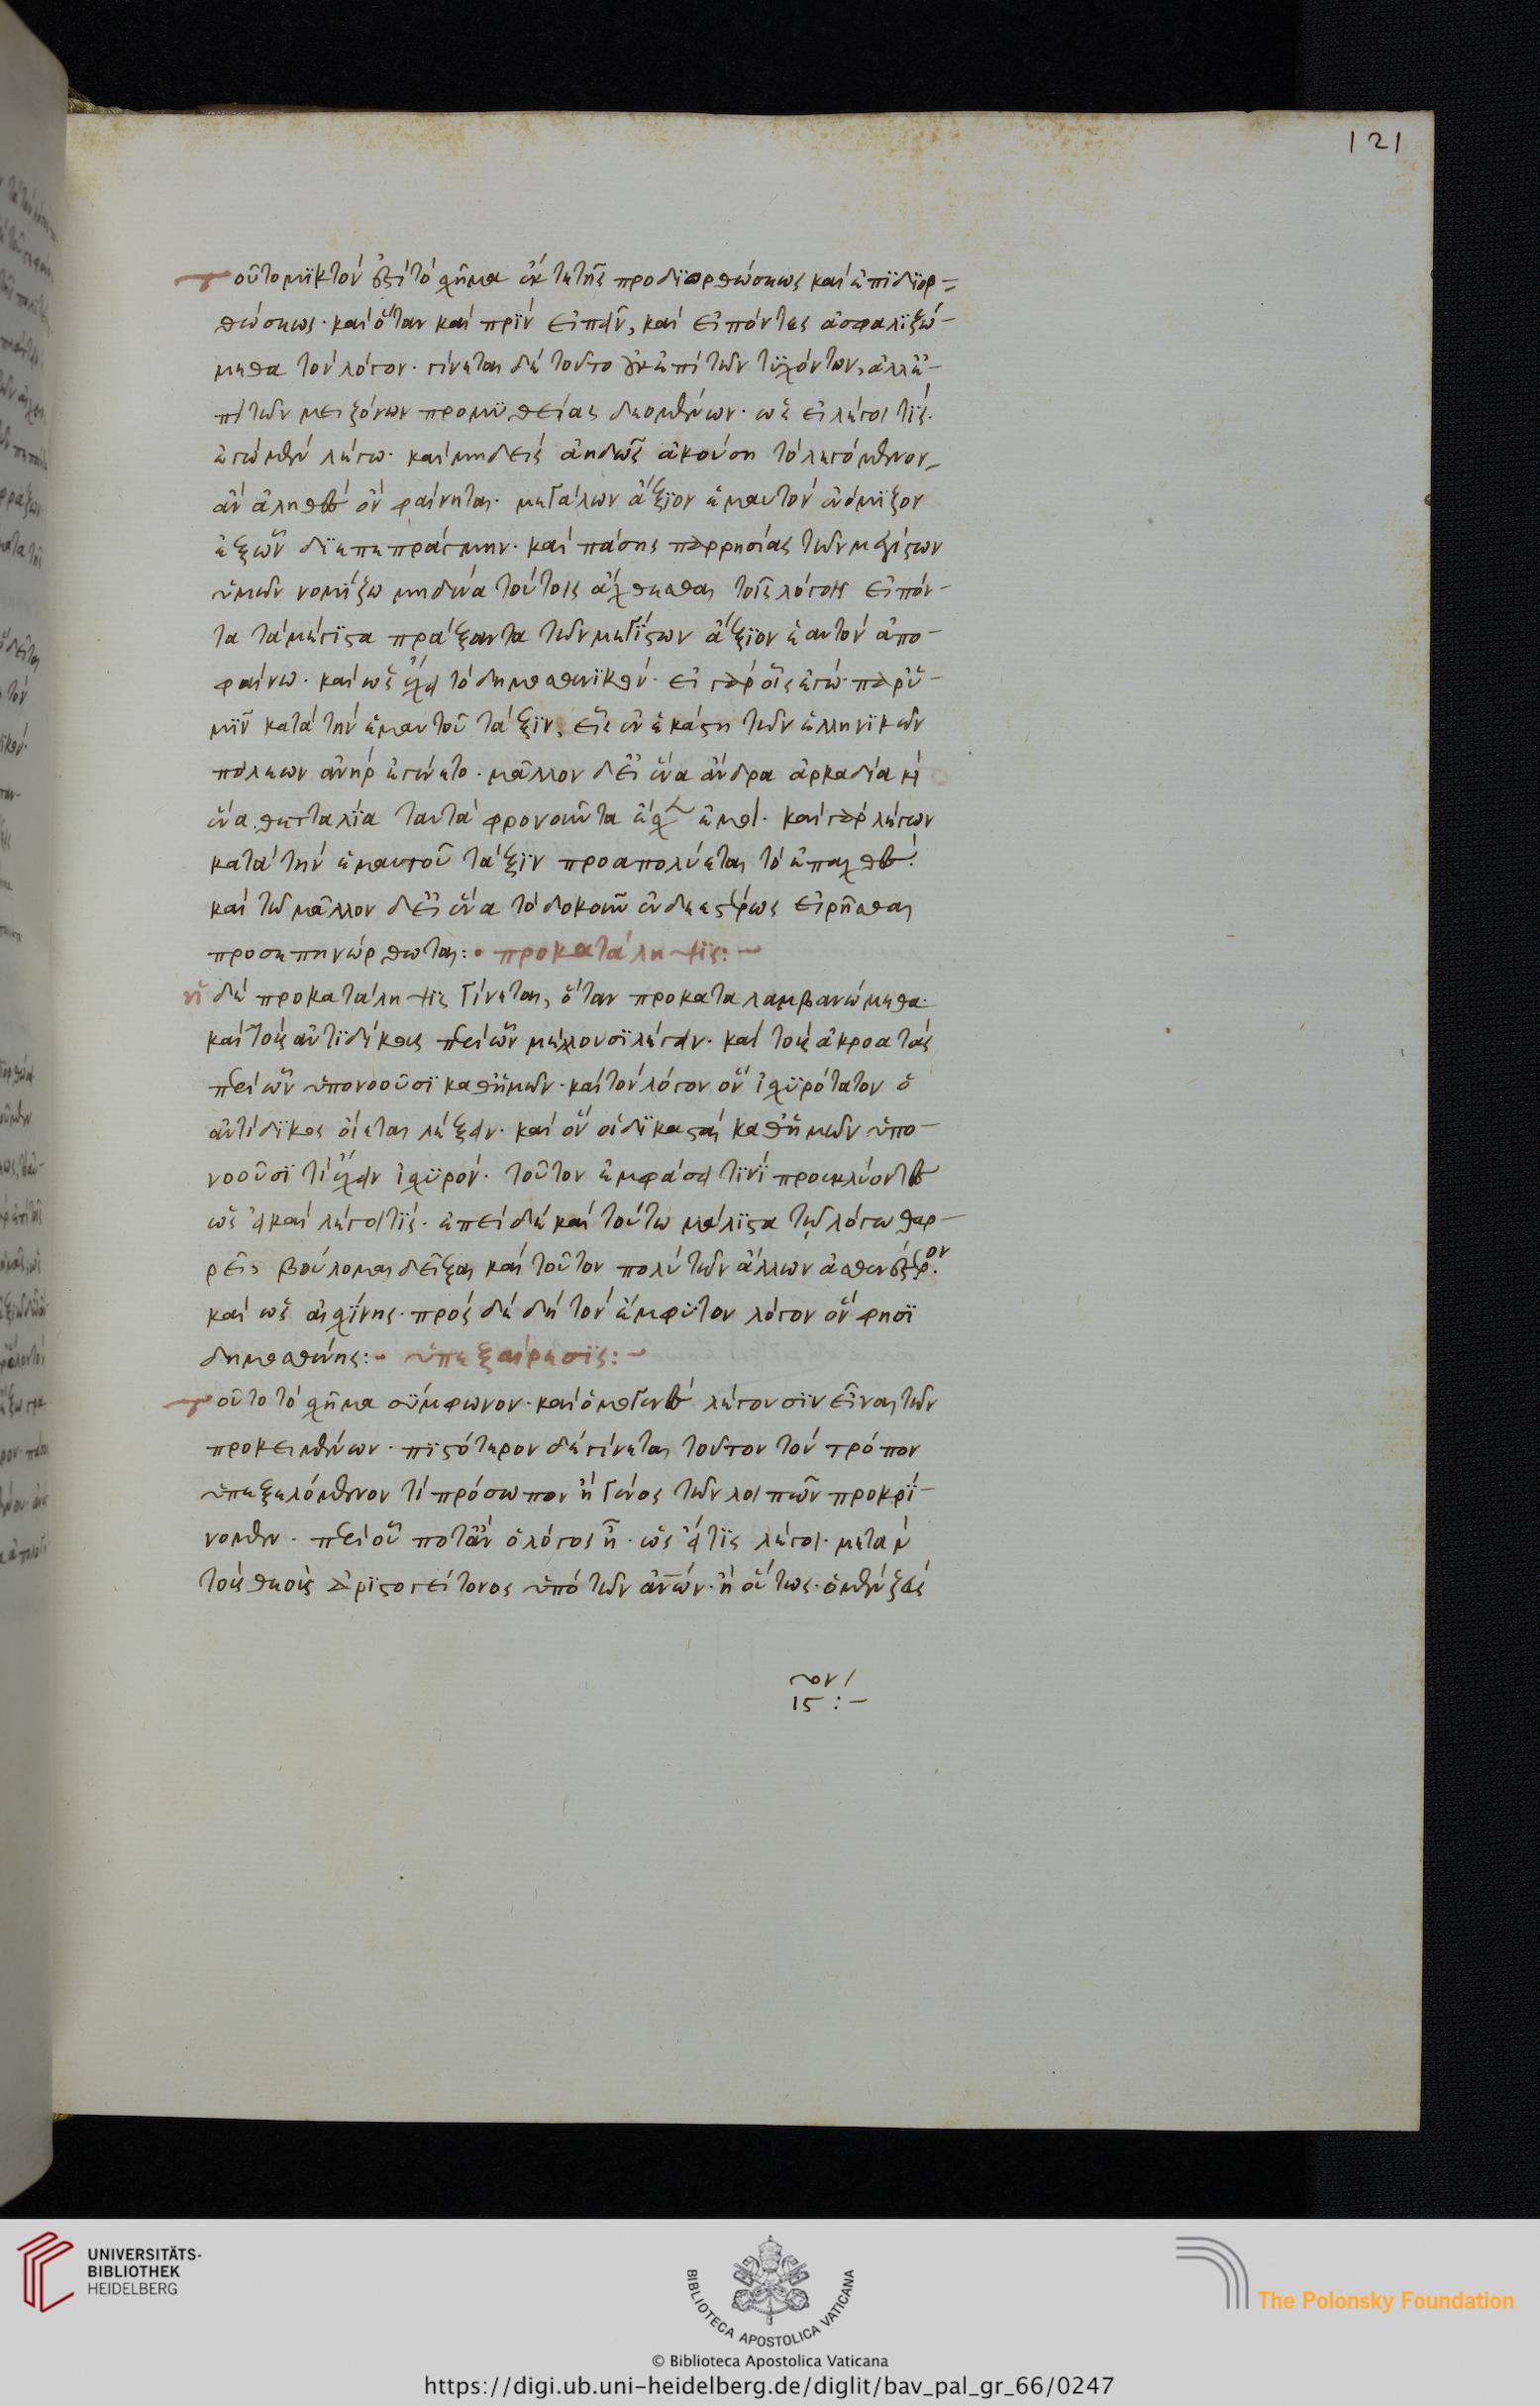 121
τοῦτο μϊκτόν ἐστι τὸ σχῆμα ἔκ τε τῆς προδϊορθώσεως καὶ ἐπϊδϊορ=
θώσεως· καὶ ὅταν καὶ πρϊν εἰπεῖν, καὶ εἰπόντες ἀσφαλϊζώ-
μεθα τὸν λόγον· γίνεται δὲ τοῦτο οὐκ ἐπὶ τῶν τϋχόντων, ἀλλ' ἐ-
πὶ τῶν μειζόνων προμϋθείας δεομένων· ὡς εἰ λέγοι τϊς·
ἐγὼ μὲν λέγω· καὶ μηδεὶς ἀηδῶς ἀκούση τὸ λεγόμενον,
ἂν ἀληθὲς ὂν φαίνηται· μεγάλων ἄξϊον ἐμαυτὸν ἐνόμϊζον
ἐξ ὧν δϊεπεπράγμην· καὶ πάσης παρρησίας τῶν μεγίστων
ὑμῶν νομίζω μηδένα τούτοις ἄχθεσθαι τοῖς λόγοις εἰπόν-
τα τὰ μέγϊστα πράξαντα τῶν μεγϊστων ἄξϊον ἑαυτὸν ἀπο-
φαίνω· καὶ ὡς ἔχει τὸ δημοσθενϊκόν· εἰ γὰρ οἷος ἐγὼ παρ' ὑ-
μϊν κατὰ τὴν ἐμαυτοῦ τάξϊν, εἷς ἐν ἑκάστη τῶν ἑλληνϊκῶν
πόλεων ἀνὴρ ἐγένετο· μᾶλλον δεῖ ἕνα ἄνδρα ἀρκαδία καὶ
ἕνα θετταλία ταυτὰ φρονοῦντα ἔσχεν ἐμοί· καὶ γὰρ λέγων
κατὰ τὴν ἐμαυτοῦ τάξϊν προαπολύεται τὸ ἐπαχθές·
καὶ τῶ μᾶλλον δεῖ ἕνα τὸ δοκοῦν ἐνδεεστέρως εἰρῆσθαι
προσεπηνώρθωται:• προκατάληψϊς:~
ἡ δὲ προκατάληψϊς γίνεται, ὅταν προκαταλαμβανώμεθα
καὶ τοὺς ἀντϊδίκους περὶ ὧν μέλλουσϊ λέγειν· καὶ τοὺς ἀκροατὰς
περὶ ὧν ὑπονοοῦσϊ καθ' ἡμῶν· καὶ τὸν λόγον ὃν ἰσχϋρότατον ὁ
ἀντίδϊκος οἴεται λέξειν· καὶ ὃν οἱ δϊκασταὶ καθ' ἡμῶν ὑπο-
νοοῦσϊ τὶ ἔχειν ἰσχϋρόν· τοῦτον ἐμφάσει τϊνϊ προεκλύοντες
ὡς εἰ καὶ λέγοι τϊς· ἐπεὶ δὲ καὶ τούτω μάλϊστα τῷ λόγω θαρ-
ρεῖς, βούλομαι δεῖξαι καὶ τοῦτον πολὺ τῶν ἄλλων ἀσθενέστερον·
καὶ ὡς αἰσχίνης· πρὸς δὲ δὴ τὸν ἔμφϋτον λόγον ὅν φησϊ
δημοσθένης:• ὑπεξαίρεσϊς:~
τοῦτο τὸ σχῆμα σϋμφωνον· καὶ ὁμογενὲς λέγουσϊν εἶναι τῶν
προκειμένων· πϊστότερον δὲ γίνεται τοῦτον τὸν τρόπον
ὑπεξελόμενον τὶ πρόσωπον ἢ γένος τῶν λοιπῶν προκρί-
νομεν· περὶ οὗ ποτ' ἂν ὁ λόγος ἦ· ὡς εἴ τϊς λέγοι· μετὰ μὲν
τοὺς θεοὺς ἀρϊστογείτονος ὑπὸ τῶν ἀν̅ων· ἢ οὕτως· ὁ μὲν ἐξ
15 :-
UNIVERSITÄTS-
BIBLIOTHEK
HEIDELBERG
BIBLIOTECA APOSTOLICA VATICANA
The Polonsky Foundation
© Biblioteca Apostolica Vaticana
https://digi.ub.uni-heidelberg.de/diglit/bav_pal_gr_66/0247